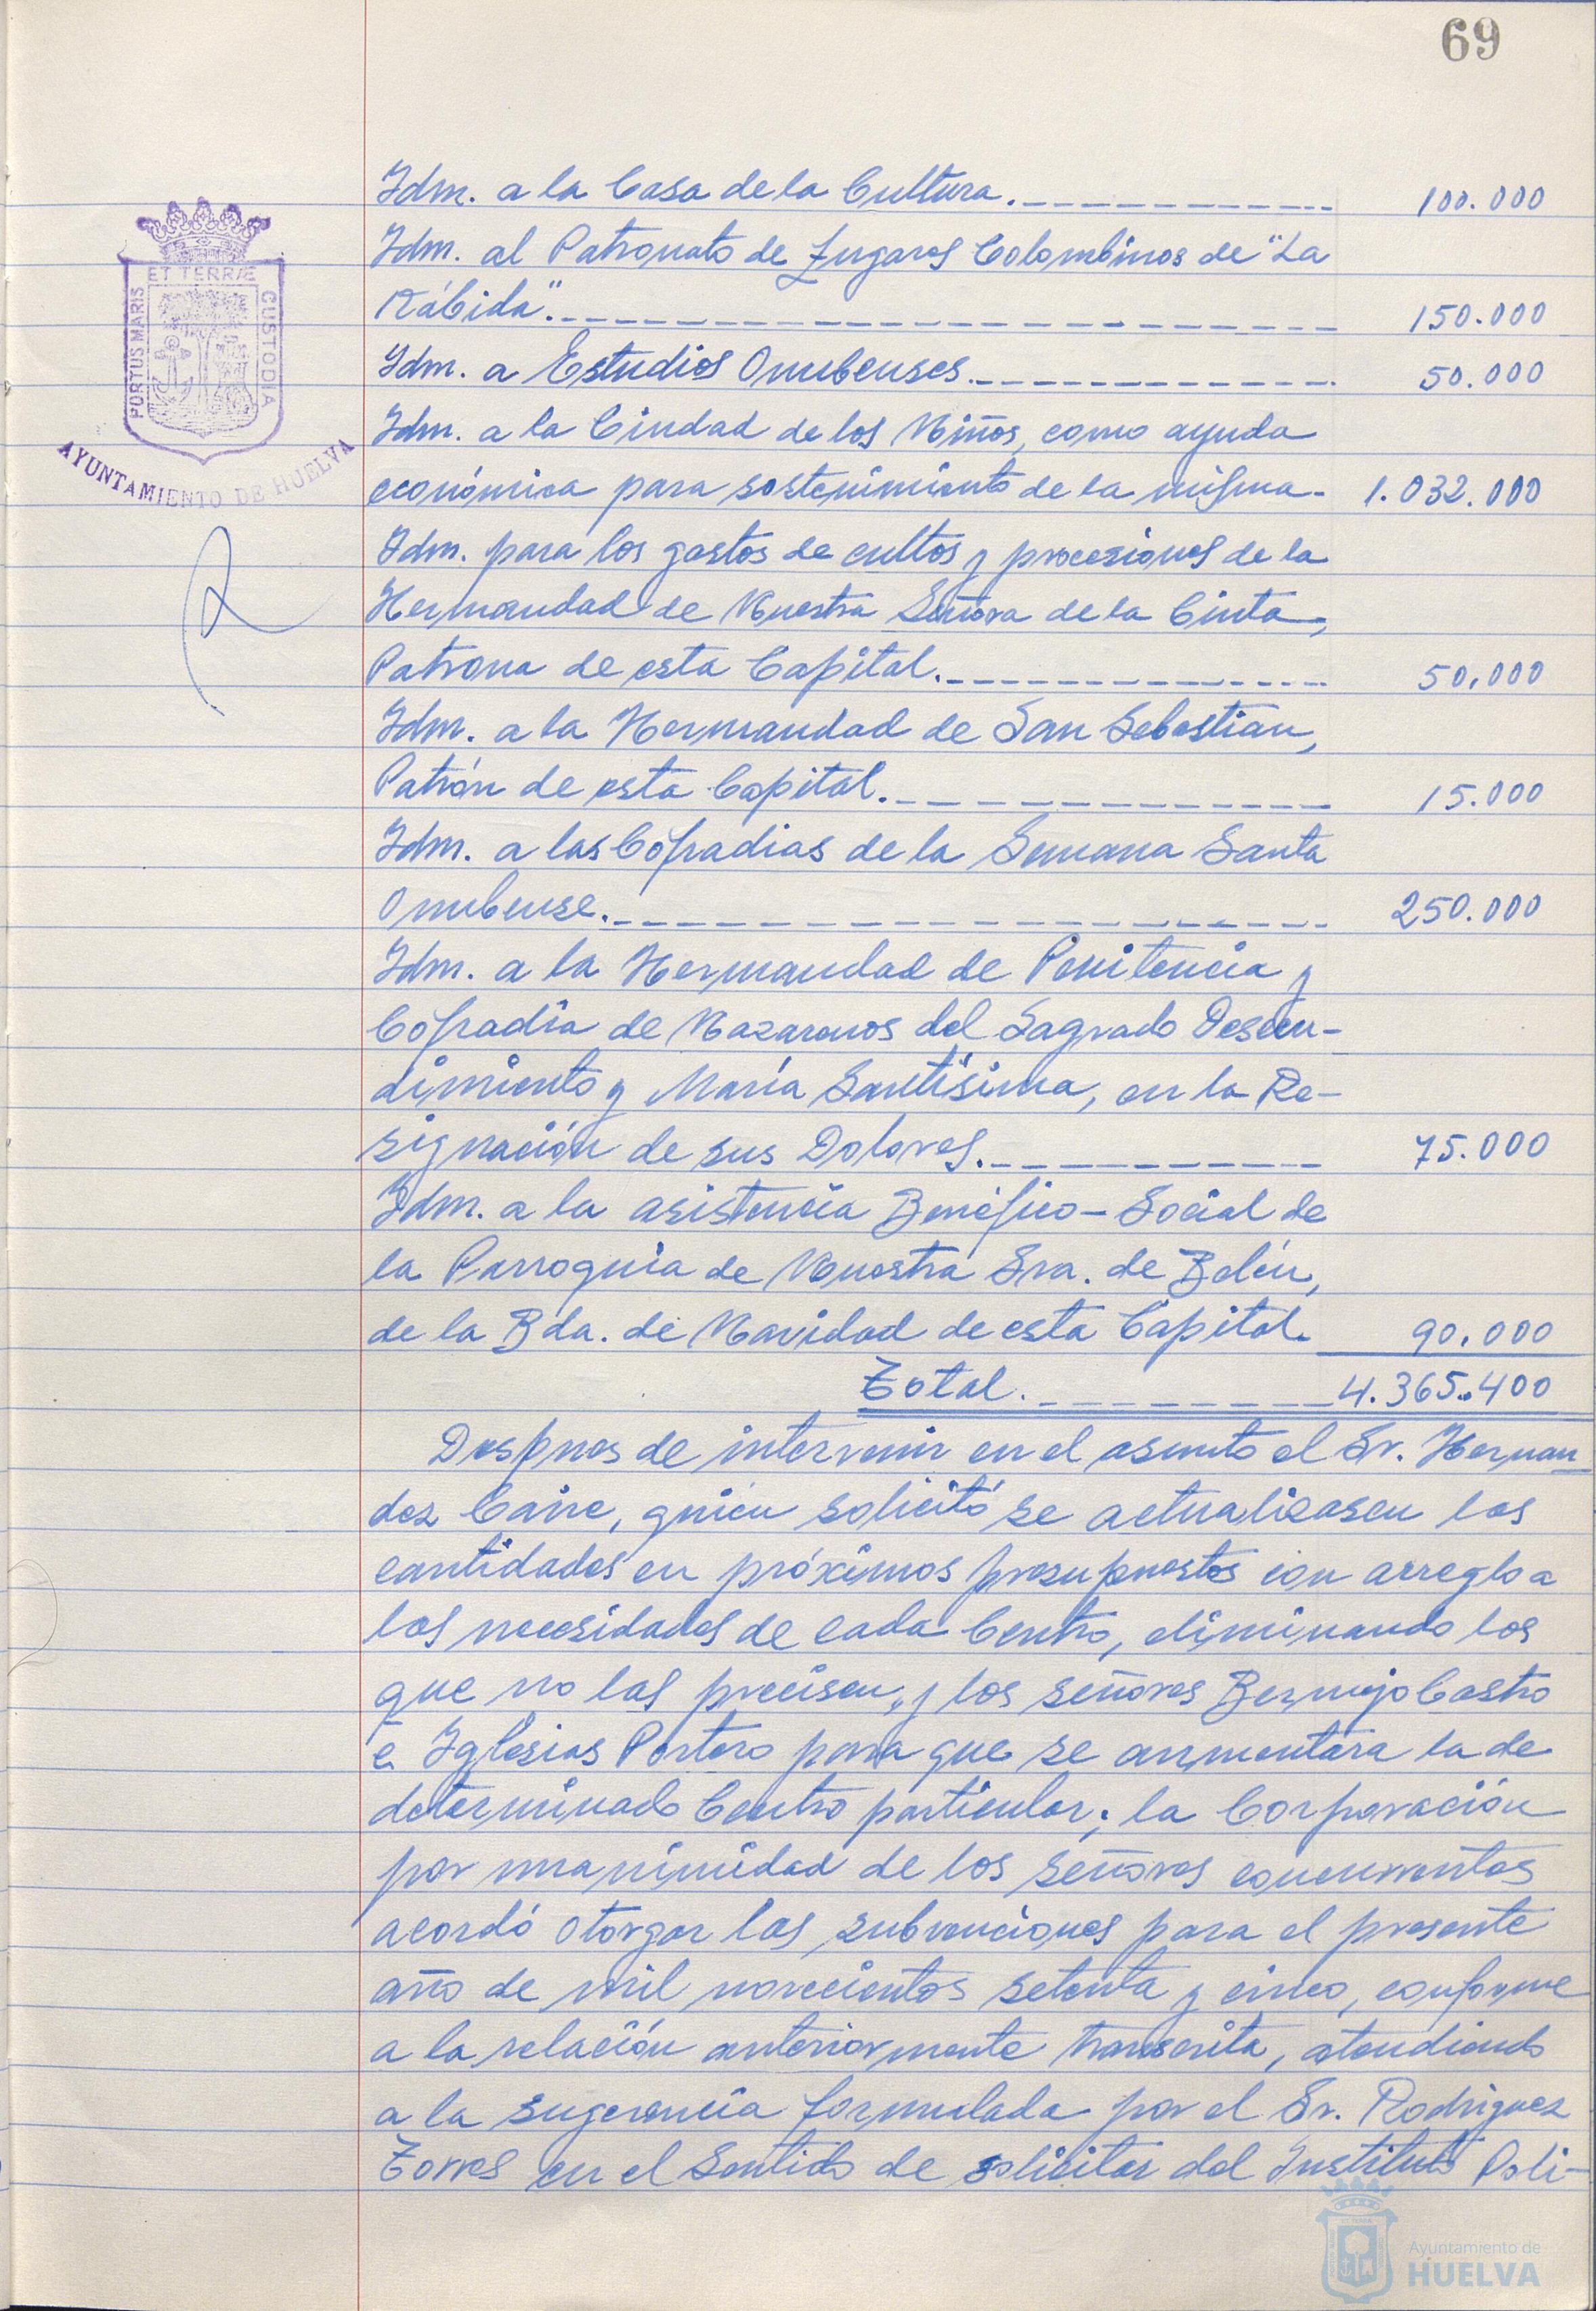 69
Idm. a la Casa de la Cultura. 100.000
Idm. al Patronato de Lugares Colombinos de "La
Rábida". 150.000
Idm. a Estudios Onubenses. 50.000
Idm. a la Ciudad de los Niños, como ayuda
económica para sostenimiento de la misma- 1.032.000
Idm. para los gastos de cultos y procesiones de la
Hermandad de Nuestra Señora de la Cinta,
Patrona de esta Capital. 50.000
Idm. a la Hermandad de San Sebastian,
Patrón de esta Capital. 15.000
Idm. a las Cofradias de la Semana Santa
Onubense. 250.000
Idm. a la Hermandad de Penitencia y
Cofradía de Nazarenos del Sagrado Descen-
dimiento y María Santísima, en la Re-
signación de sus Dolores. 75.000
Idm. a la asistencia Benéfico-Social de
la Parroquia de Nuestra Sra. de Belén,
de la Bda. de Navidad de esta Capital. 90.000
Total. 4.365.400
Despues de intervenir en el asunto el Sr. Hernan-
dez Caire, quien solicitó se actualizasen las
cantidades en próximos presupuestos con arreglo a
las necesidades de cada Centro, eliminando los
que no las precisen, y los señores Bermejo Castro
e Iglesias Portero para que se aumentara la de
determinado Centro particular; la Corporación
por unanimidad de los señores concurrentes
acordó otorgar las subvenciones para el presente
año de mil novecientos setenta y cinco, conforme
a la relación anteriormente transcrita, atendiendo
a la sugerencia formulada por el Sr. Rodriguez
Torres en el sentido de solicitar del Instituto Poli-
ET TERRÆ
PORTUS MARIS
CUSTODIA
AYUNTAMIENTO DE HUELVA
Ayuntamiento de
HUELVA